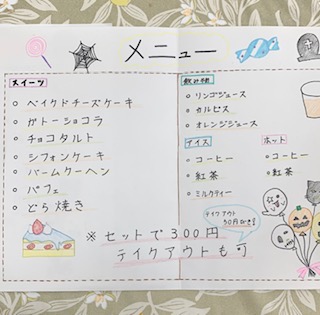 メニュー
スイーツ
ベイクドチーズケーキ
ガトーショコラ
チョコタルト
シフォンケーキ
バームクーヘン
パフェ
どら焼き
飲み物
リンゴジュース
カルピス
オレンジジュース
アイス
コーヒー
紅茶
ミルクティー
ホット
コーヒー
紅茶
テイクアウト
50円びき!
※ セットで300円
テイクアウトも可